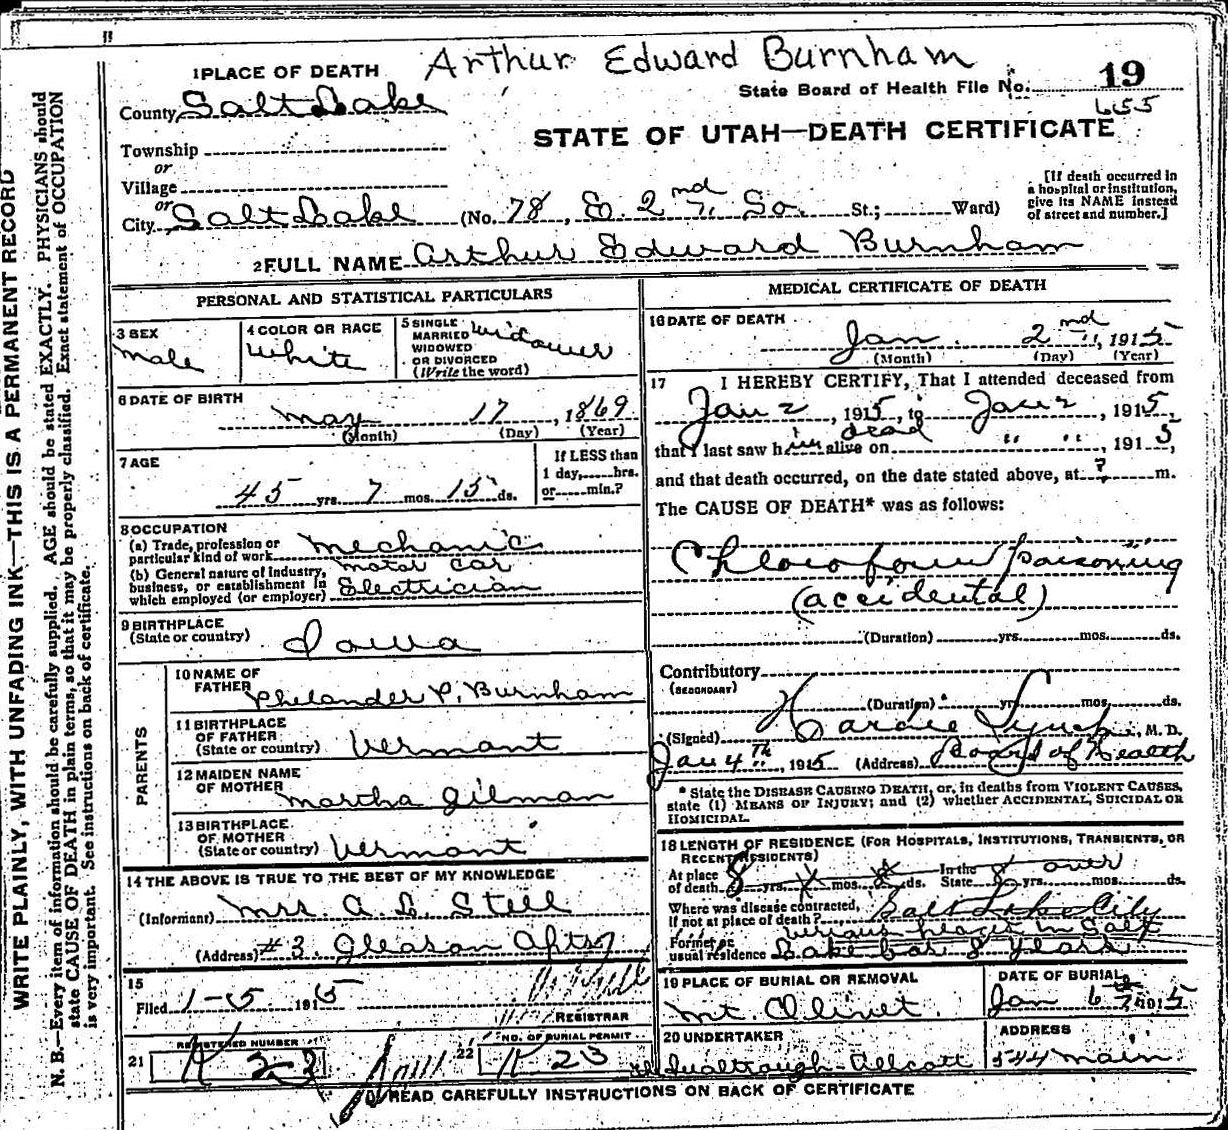 Arthur Edward Burnham
1 PLACE OF DEATH
State Board of Health File No. 19
655
County Salt Lake
STATE OF UTAH—DEATH CERTIFICATE
Township
or
Village
or
City Salt Lake (No. 78, E. 2nd So. St.; Ward)
[If death occurred in
a hospital or institution,
give its NAME instead
of street and number.]
2 FULL NAME Arthur Edward Burnham
PERSONAL AND STATISTICAL PARTICULARS
3 SEX
Male
4 COLOR OR RACE
White
5 SINGLE
MARRIED
WIDOWED
OR DIVORCED
(Write the word)
Widower
6 DATE OF BIRTH
May 17, 1869
(Month) (Day) (Year)
7 AGE
45 yrs. 7 mos. 15 ds.
If LESS than
1 day,......hrs.
or......min.?
8 OCCUPATION
(a) Trade, profession or
particular kind of work Mechanic
(b) General nature of industry,
business, or establishment in
which employed (or employer)
motor car
Electrician
9 BIRTHPLACE
(State or country) Iowa
PARENTS
10 NAME OF
FATHER Phelander P. Burnham
11 BIRTHPLACE
OF FATHER
(State or country) Vermont
12 MAIDEN NAME
OF MOTHER Martha Gilman
13 BIRTHPLACE
OF MOTHER
(State or country) Vermont
14 THE ABOVE IS TRUE TO THE BEST OF MY KNOWLEDGE
(Informant) Mrs. A. L. Stell
(Address) #3. Gleason Apts
15
Filed 1-5 1915
REGISTRAR
21 REGISTERED NUMBER
K 23
22 NO. OF BURIAL PERMIT
K 23
MEDICAL CERTIFICATE OF DEATH
16 DATE OF DEATH
Jan. 2nd, 1915
(Month) (Day) (Year)
17 I HEREBY CERTIFY, That I attended deceased from
Jan 2, 1915, to Jan 2, 1915,
that I last saw him dead alive on " ", 1915,
and that death occurred, on the date stated above, at ? m.
The CAUSE OF DEATH* was as follows:
Chloroform poisoning
(accidental)
(Duration) yrs. mos. ds.
Contributory
(SECONDARY)
(Duration) yrs. mos. ds.
(Signed) Hardie Lynch, M. D.
Jan 4th, 1915 (Address) Board of Health
* State the DISEASE CAUSING DEATH, or, in deaths from VIOLENT CAUSES,
state (1) MEANS OF INJURY; and (2) whether ACCIDENTAL, SUICIDAL OR
HOMICIDAL.
18 LENGTH OF RESIDENCE (FOR HOSPITALS, INSTITUTIONS, TRANSIENTS, OR
RECENT RESIDENTS)
At place
of death 8 yrs. mos. ds. In the
State 8 yrs. over mos. ds.
Where was disease contracted,
if not at place of death? Salt Lake City
Former or
usual residence
various places in Salt
Lake 8 years
19 PLACE OF BURIAL OR REMOVAL
Mt. Olivet
DATE OF BURIAL
Jan 6th 1915
20 UNDERTAKER
ADDRESS
544 Main
READ CAREFULLY INSTRUCTIONS ON BACK OF CERTIFICATE
WRITE PLAINLY, WITH UNFADING INK—THIS IS A PERMANENT RECORD
N. B.—Every item of information should be carefully supplied. AGE should be stated EXACTLY. PHYSICIANS should
state CAUSE OF DEATH in plain terms, so that it may be properly classified. Exact statement of OCCUPATION
is very important. See instructions on back of certificate.